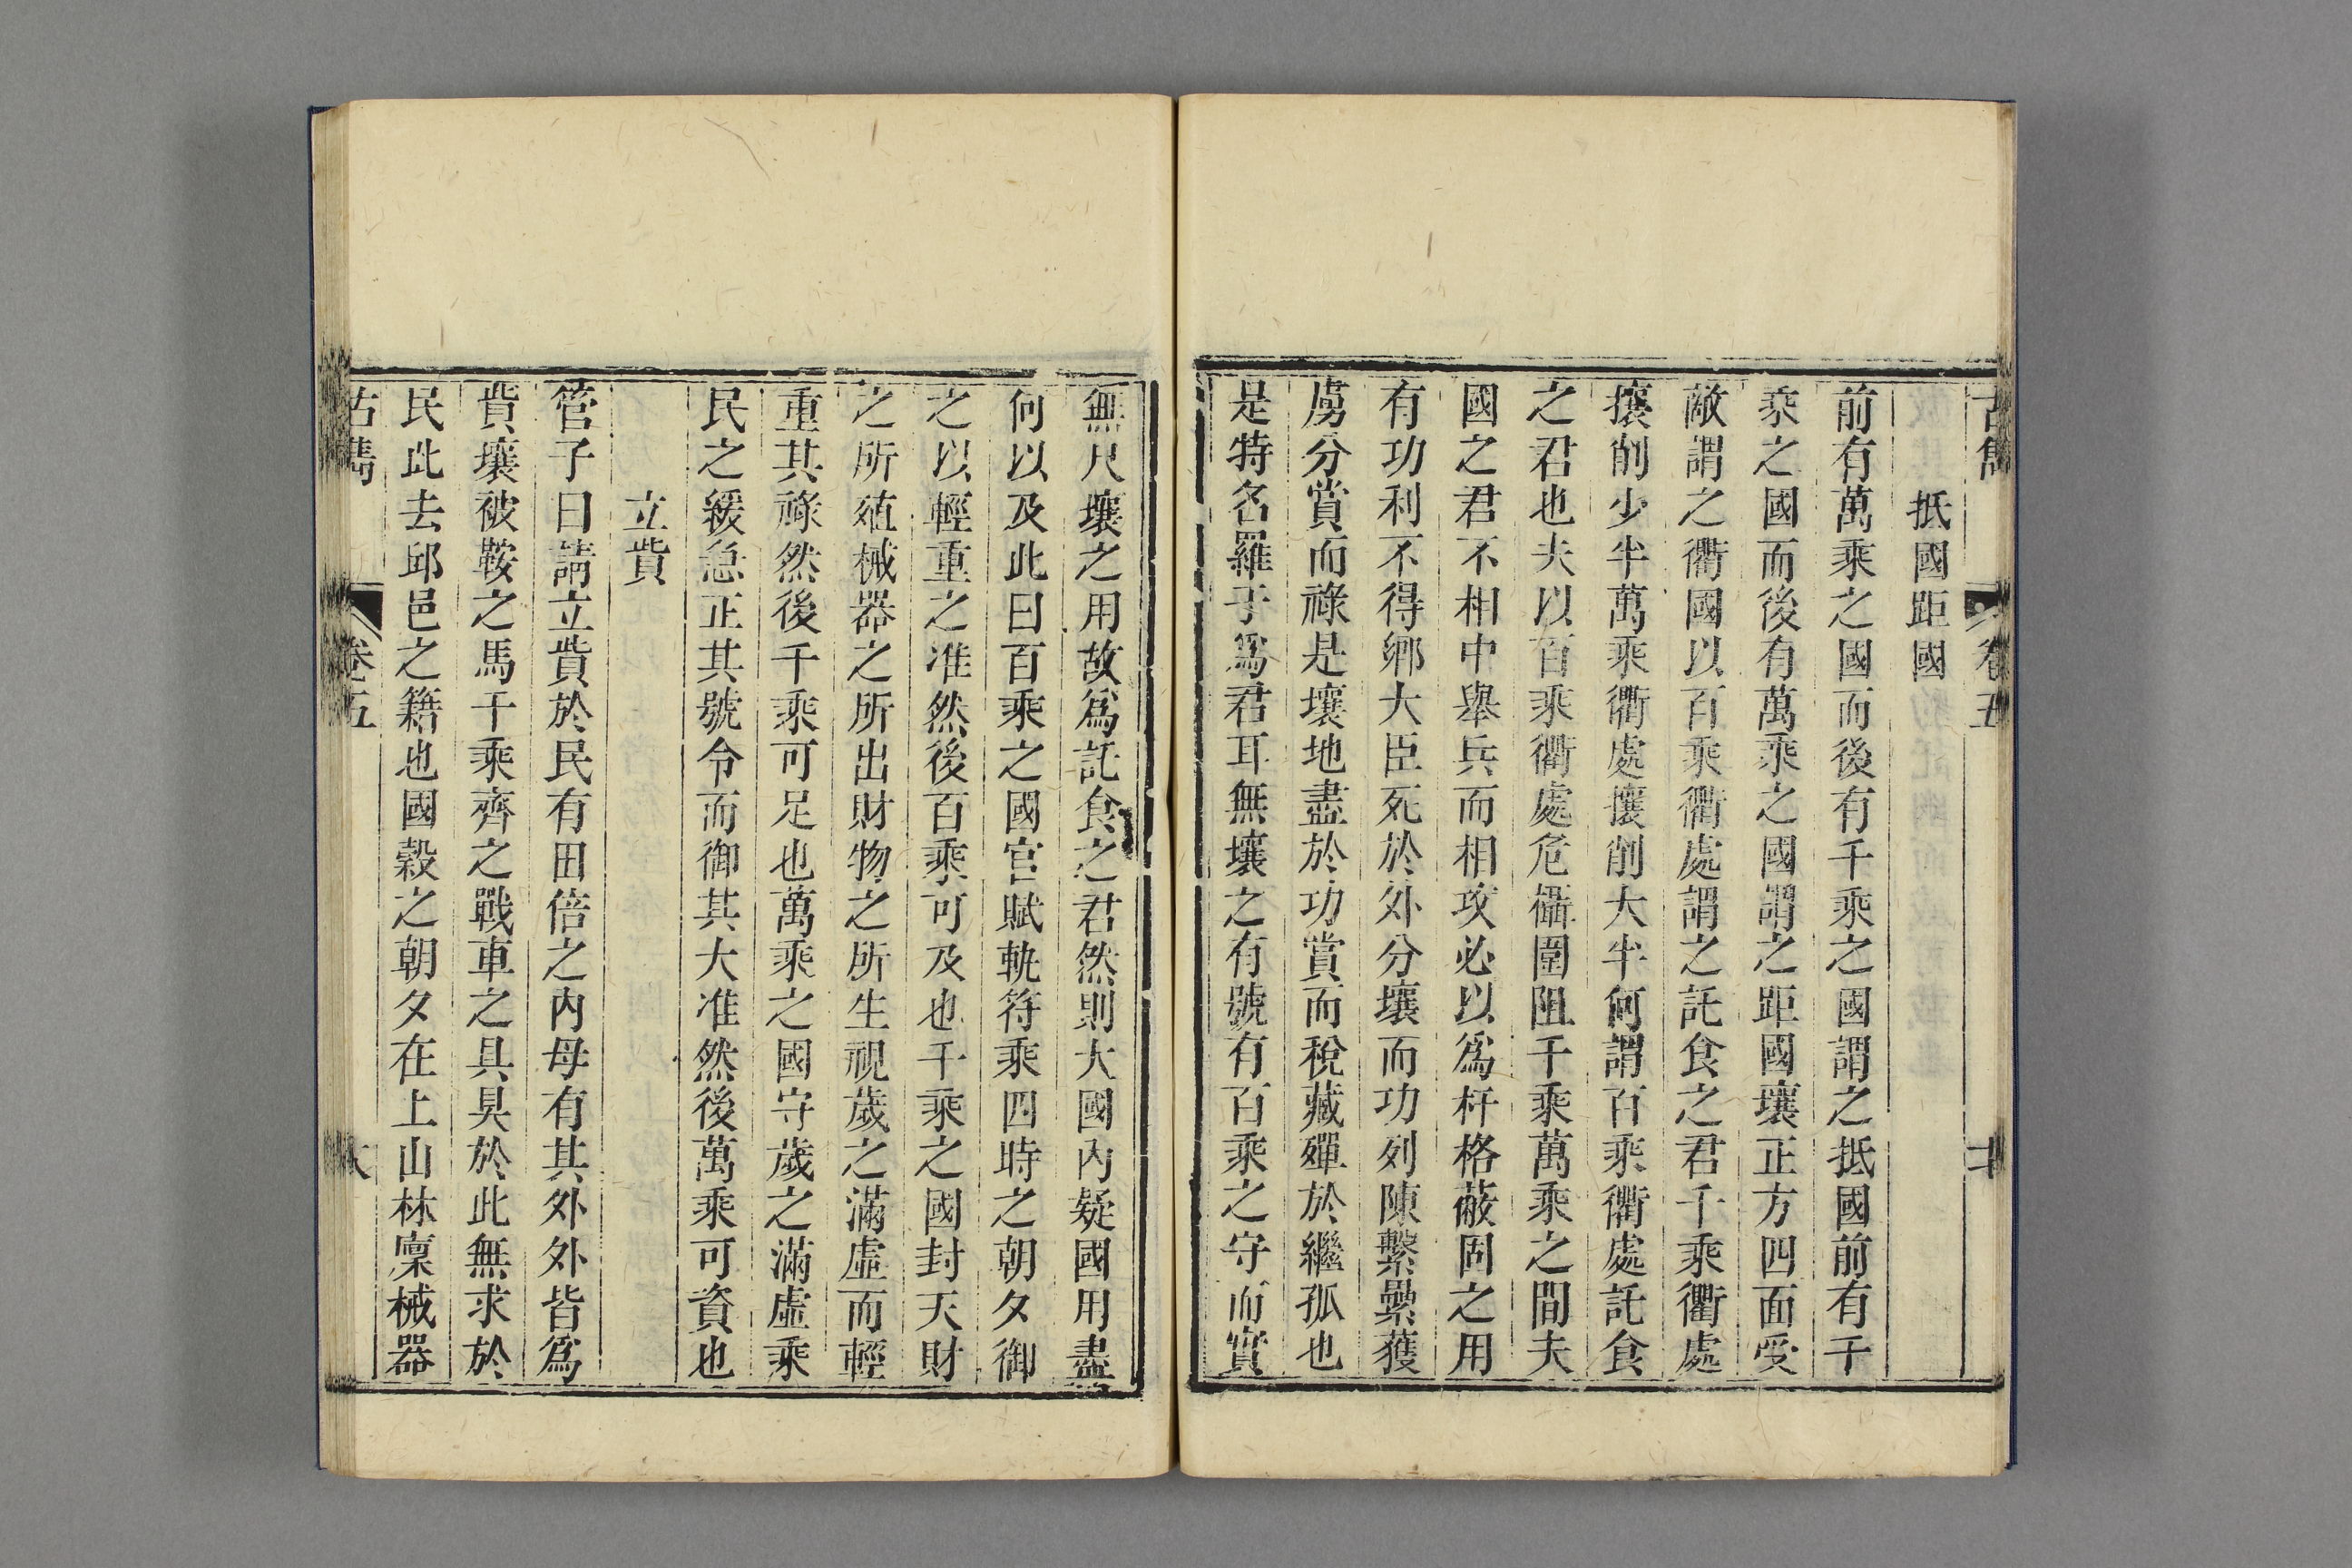 古雋 卷五
抵國距國
前有萬乘之國而後有千乘之國謂之抵國前有千
乘之國而後有萬乘之國謂之距國壤正方四面受
敵謂之衢國以百乘衢處謂之託食之君千乘衢處
攘削少半萬乘衢處攘削大半何謂百乘衢處託食
之君也夫以百乘衢處危懾圍阻千乘萬乘之間夫
國之君不相中舉兵而相攻必以爲杆格蔽固之用
有功利不得鄉大臣死於外分壤而功列陳繫纍獲
虜分賞而祿是壤地盡於功賞而稅藏殫於繼孤也
是特名羅于爲君耳無壤之有號有百乘之守而實
無尺壤之用故爲託食之君然則大國內疑國用盡
何以及此曰百乘之國官賦軌符乘四時之朝夕御
之以輕重之准然後百乘可及也千乘之國封天財
之所殖械器之所出財物之所生視歲之滿虛而輕
重其祿然後千乘可足也萬乘之國守歲之滿虛乘
民之緩急正其號令而御其大准然後萬乘可資也
立貲
管子曰請立貲於民有田倍之內毋有其外外皆爲
貲壤被鞍之馬千乘齊之戰車之具具於此無求於
民此去邱邑之籍也國穀之朝夕在上山林廩械器
古雋 卷五